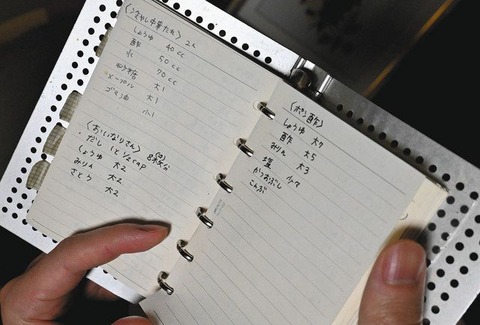 〈冷やし中華たれ〉 2人
しょうゆ 40cc
酢 50cc
水 70cc
砂とう 大1
メープル 大1
ゴマ油 小1
〈おいなりさん〉 8枚分
・だし 1と1/2cap
しょうゆ 大2
みりん 大2
さとう 大2
〈ポン酢〉
しょうゆ 大7
酢 大5
みりん 大3
塩 少々
かつおぶし
こんぶ